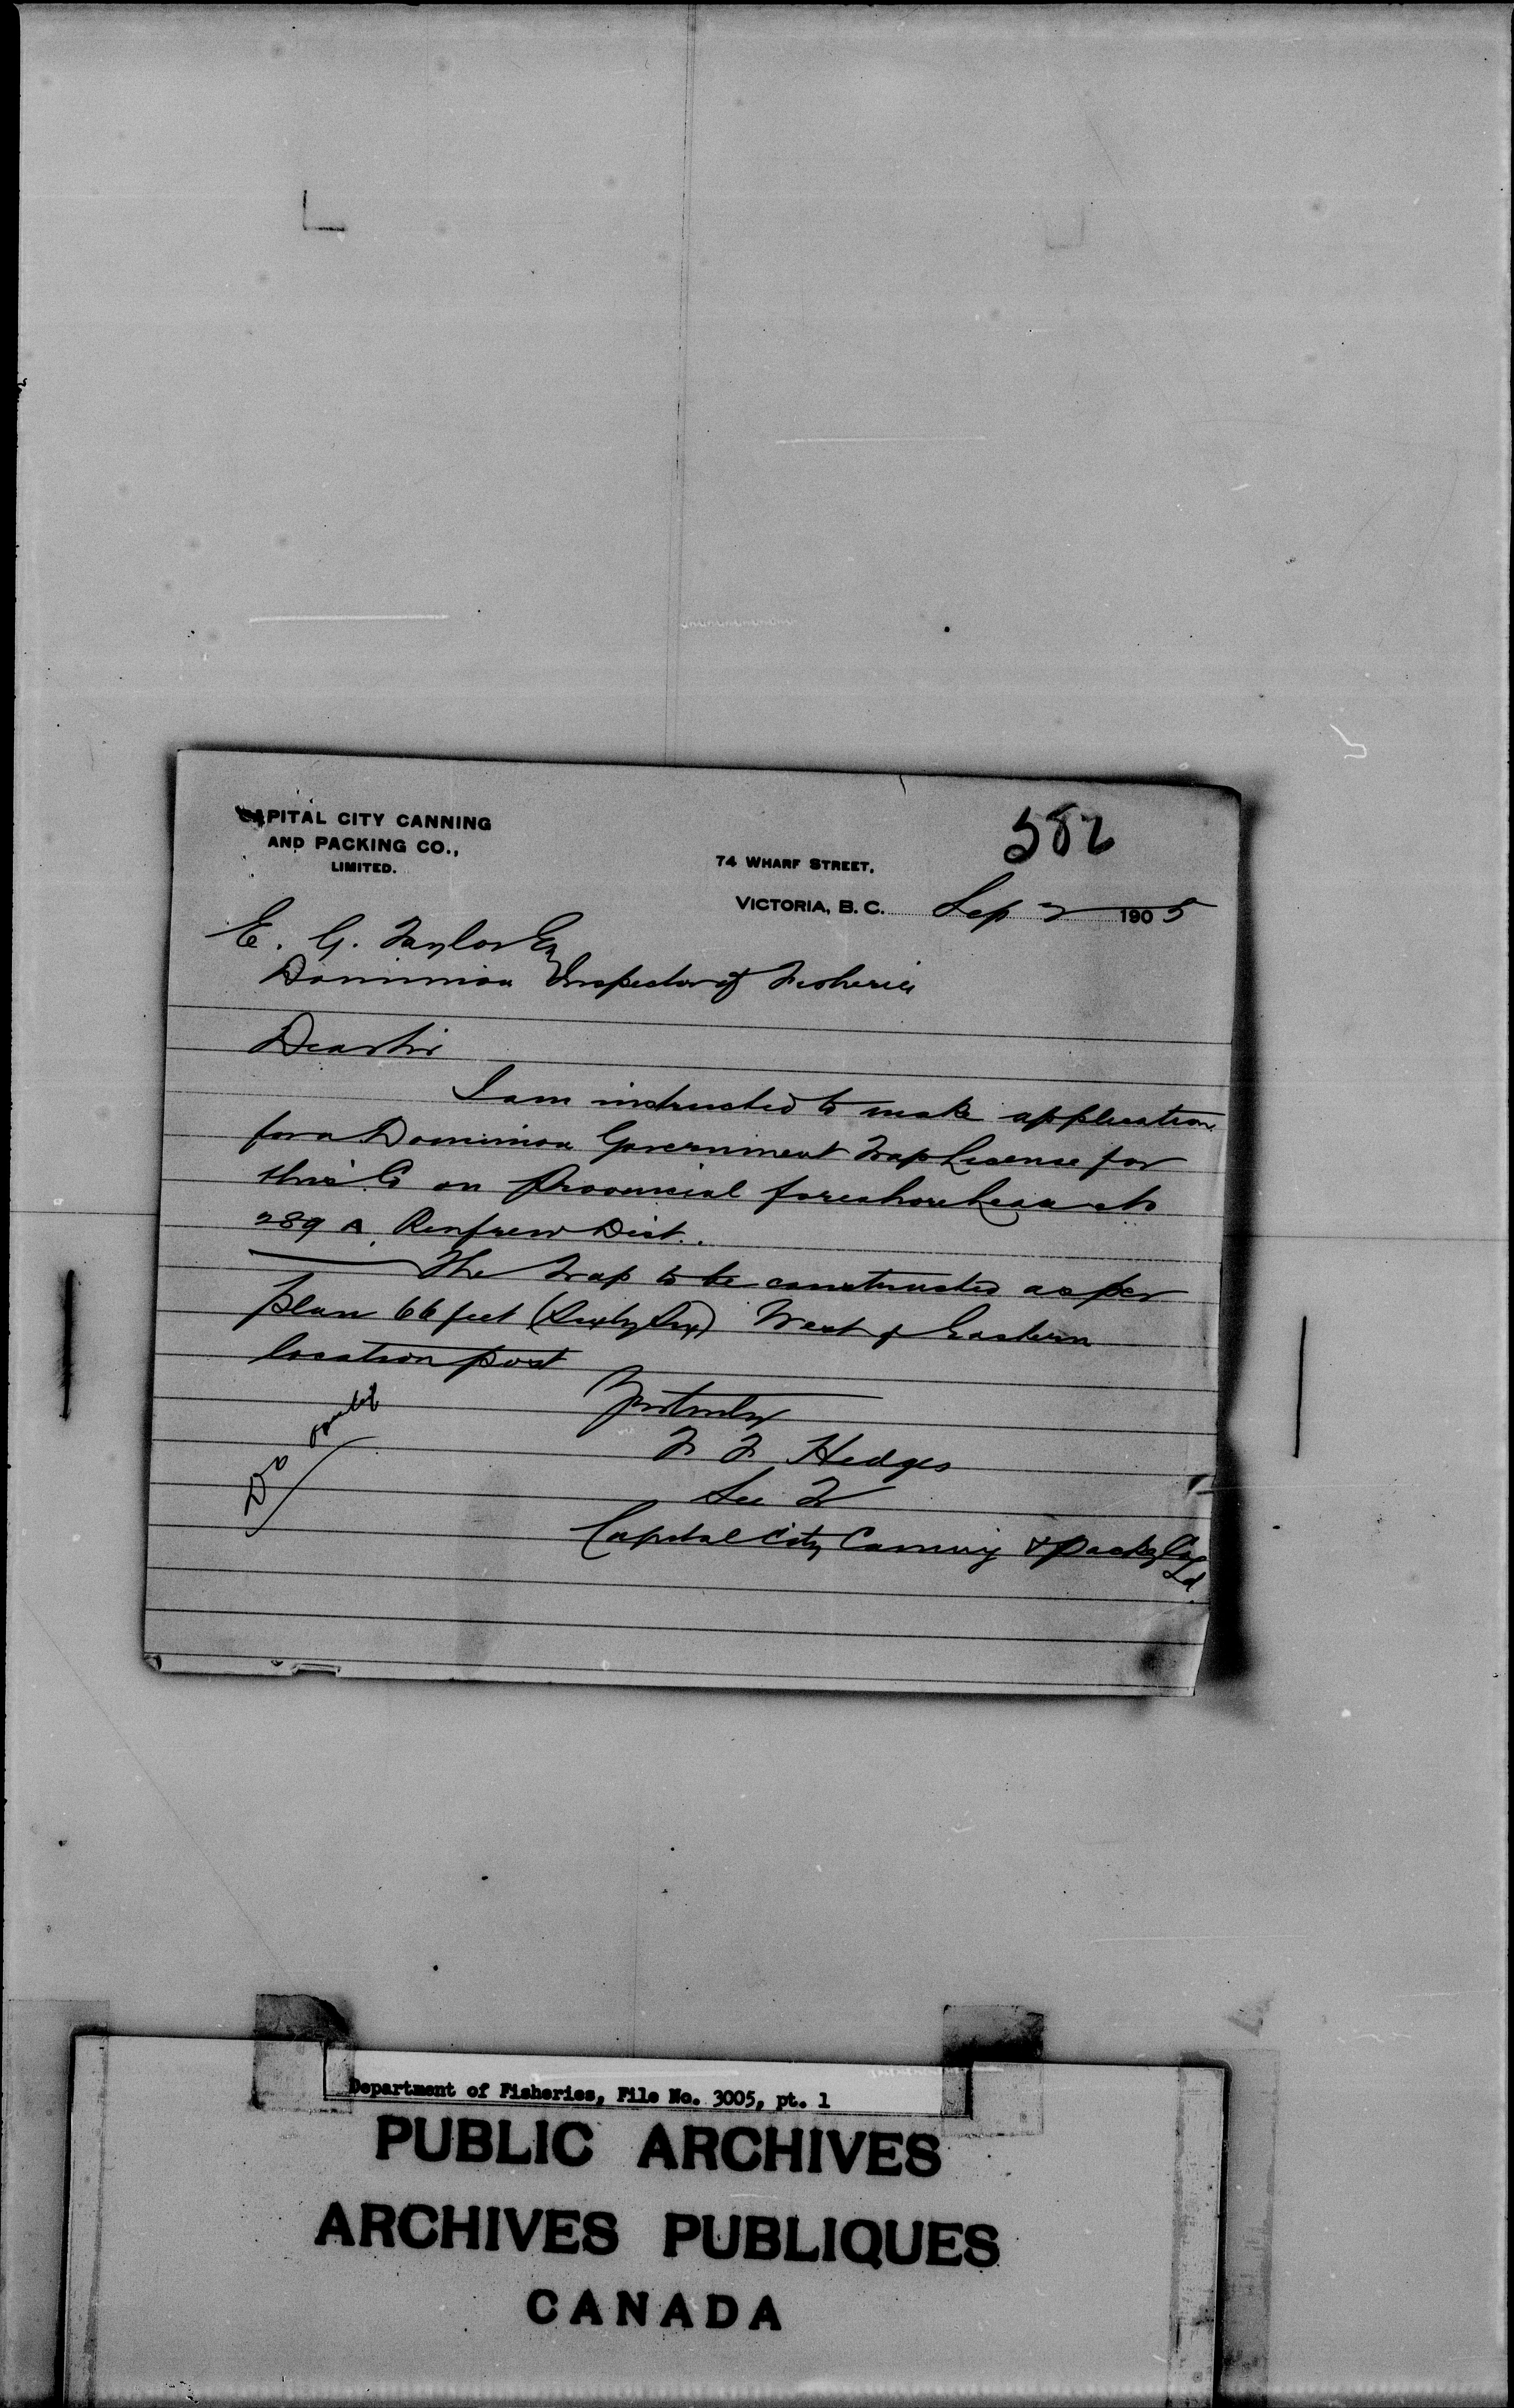 CAPITAL CITY CANNING
AND PACKING CO.,
LIMITED.
582
74 WHARF STREET,
VICTORIA, B. C. Sep 2 1905
E. G. Taylor Esq
Dominion Inspector of Fisheries
Dear Sir
I am instructed to make application
for a Dominion Government Trap License for
this Co on Provincial foreshore Lease No
289 A. Renfrew Dist.
The Trap to be constructed as per
plan 66 feet (Sixty Six) West of Eastern
location post
Yrs truly
F F Hedges
Sec Tr
Capital City Canning & Packg Co
Ld
Department of Fisheries, File No. 3005, pt. 1
PUBLIC ARCHIVES
ARCHIVES PUBLIQUES
CANADA